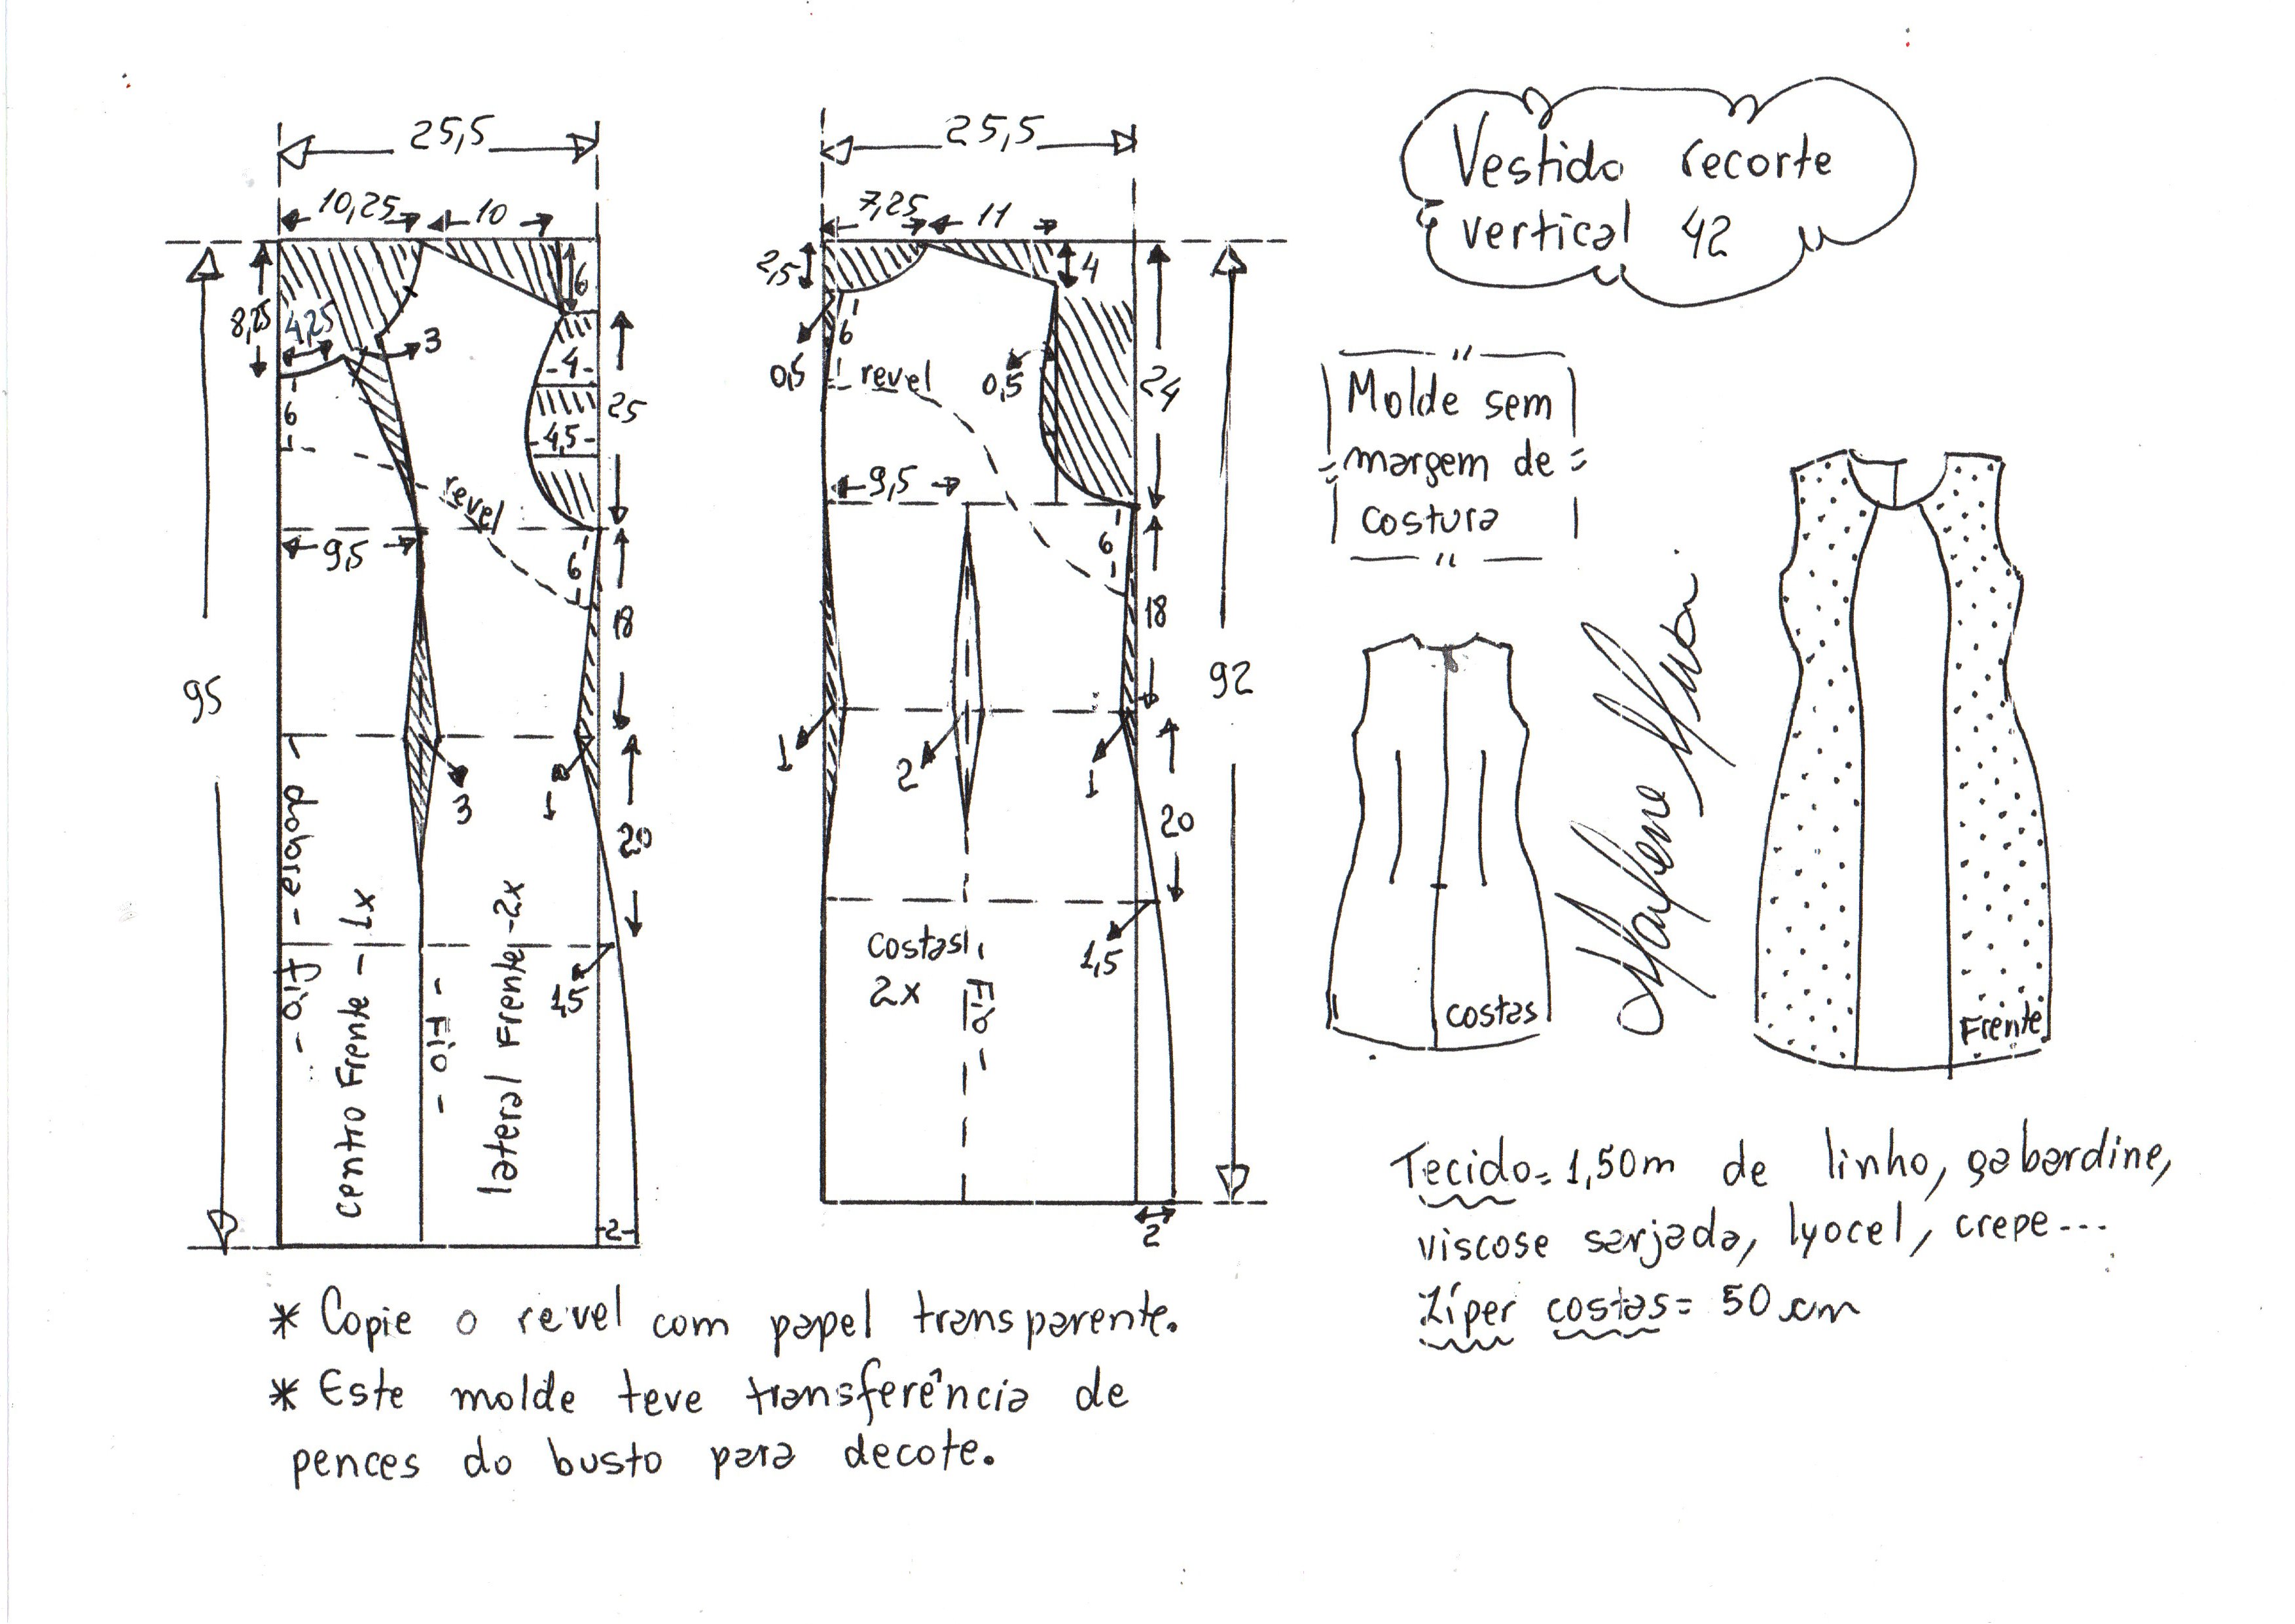 25,5
10,25
10
6
8,25
4,25
3
4
25
4,5
6
revel
9,5
6
18
95
3
1
20
dobra - fio -
centro Frente - 1x
- Fio -
lateral Frente - 2x
1,5
2
25,5
7,25
11
2,5
4
6
0,5
revel
0,5
24
9,5
6
18
92
1
2
1
20
1,5
costas
2x
Fio -
2
Vestido recorte
vertical 42
Molde sem
margem de
costura
costas
Marlene
Frente
Tecido= 1,50m de linho, gabardine,
viscose sarjada, lyocel, crepe---
Zíper costas= 50 cm
* Copie o revel com papel transparente.
* Este molde teve transferência de
pences do busto para decote.